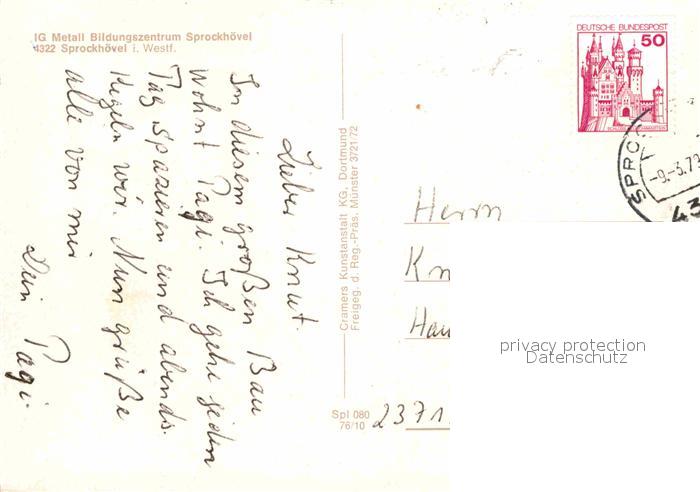 IG Metall Bildungszentrum Sprockhövel
4322 Sprockhövel i. Westf.
Lieber Knut.
In diesem großen Bau
wohnt Pagi. Ich gehe jeden
Tag spazieren und abends
Kegeln wir. Nun grüße
alle von mir
Dein Pagi.
Cramers Kunstanstalt KG, Dortmund
Freigeg. d. Reg.-Präs. Münster 3721/72
Spl 080
76/10
DEUTSCHE BUNDESPOST
50
SPROC
-9.-3.79
43
Herrn
Kn
Hau
2371
privacy protection
Datenschutz